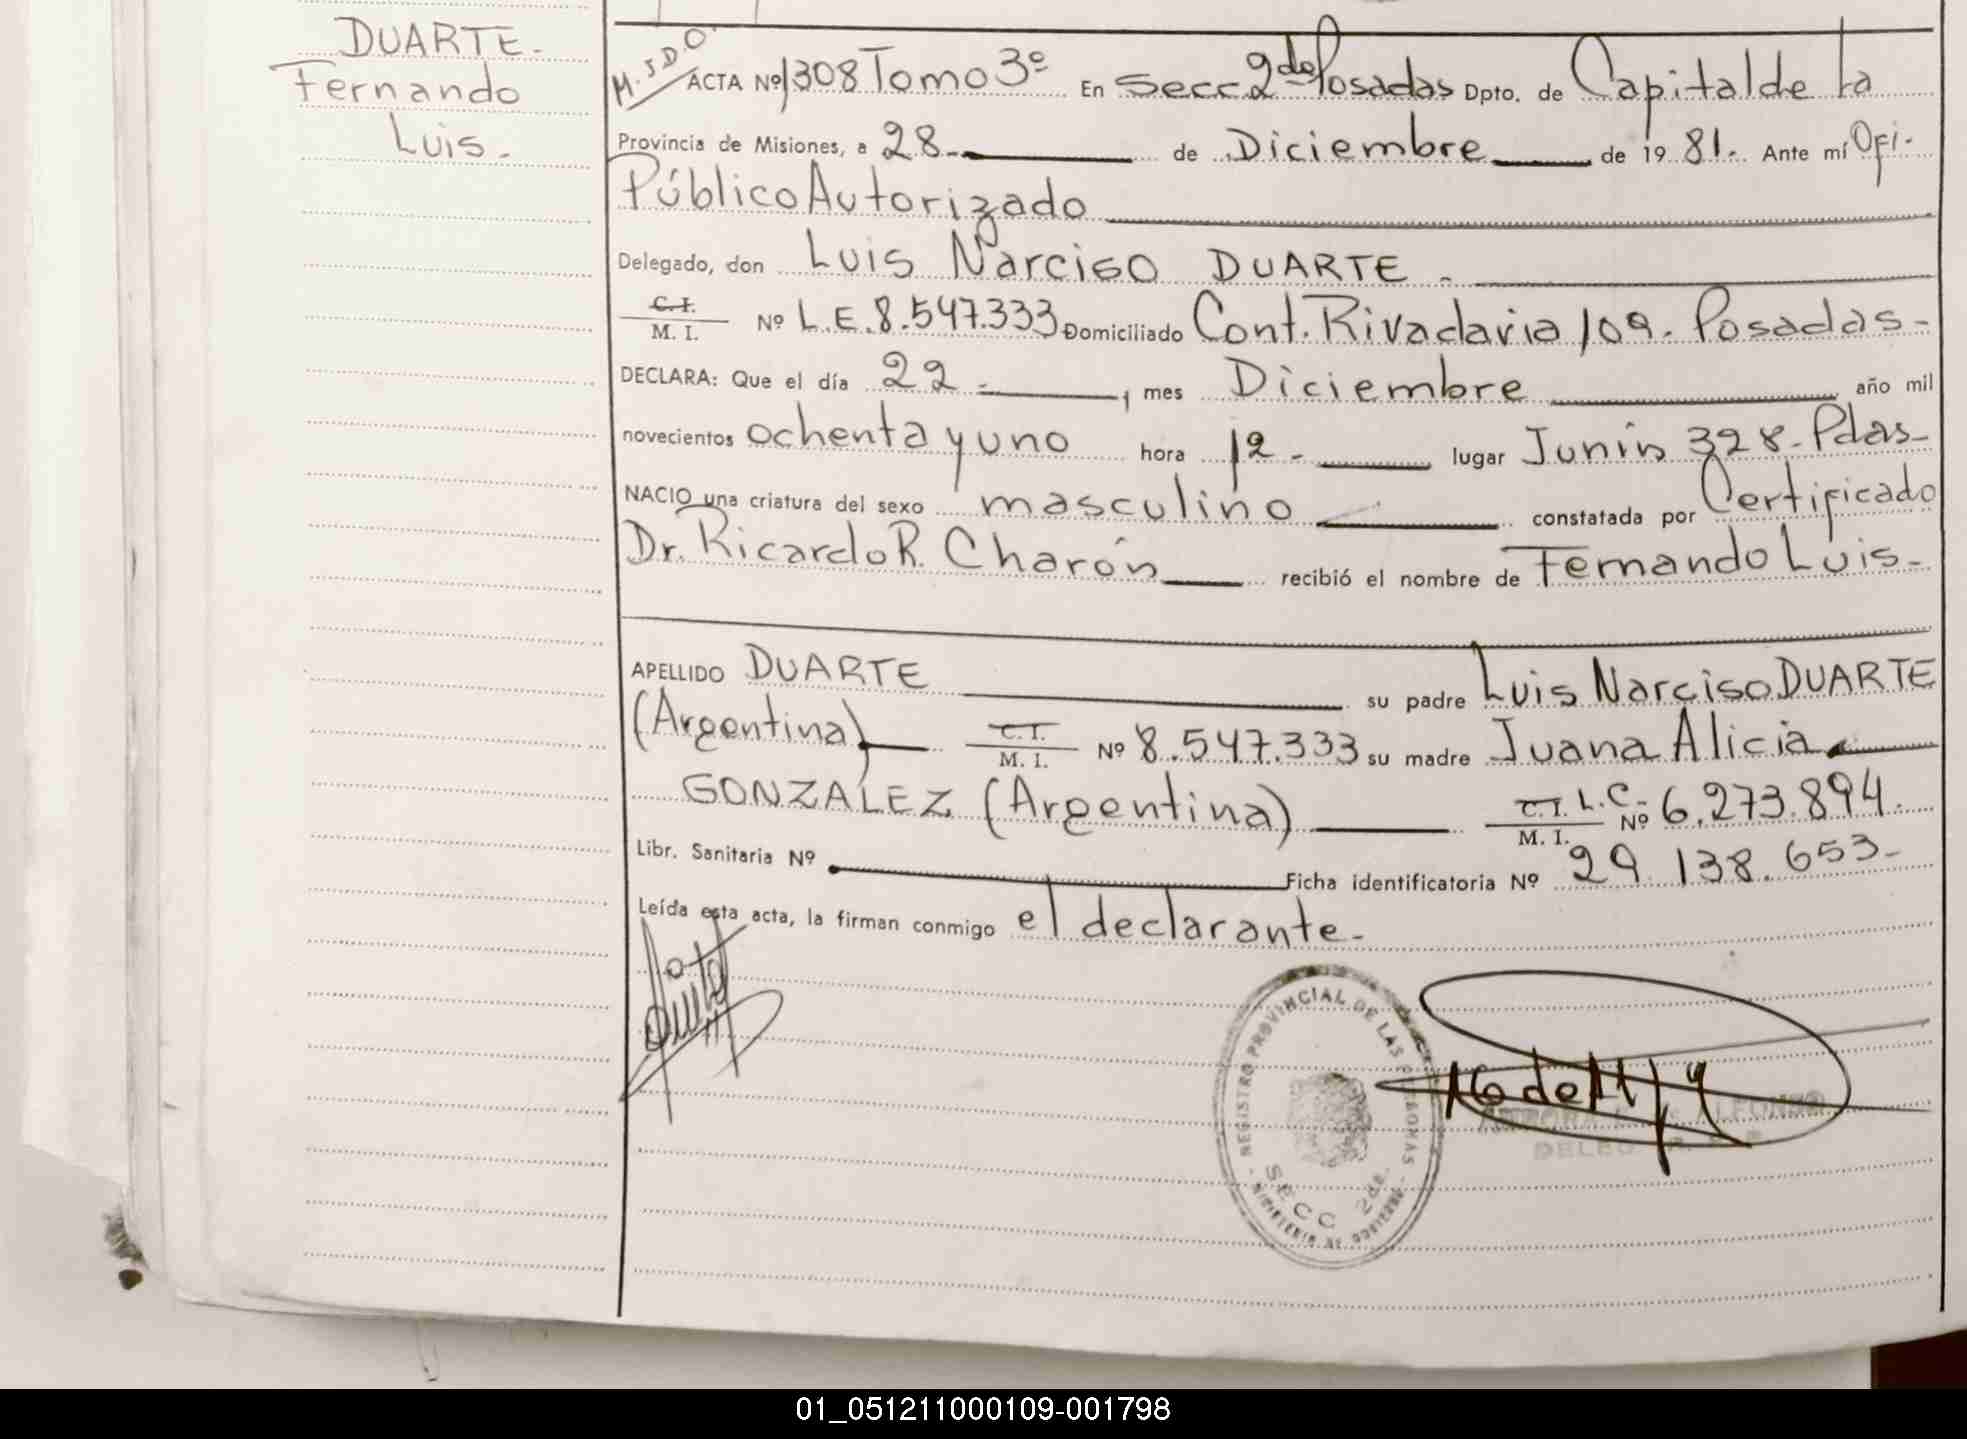 DUARTE.
Fernando
Luis.
M.S.D.O.
ACTA Nº 1308 Tomo 3º En Secc 2da Posadas Dpto. de Capital de la
Provincia de Misiones, a 28 de Diciembre de 1981. Ante mí Ofi.
Público Autorizado
Delegado, don Luis Narciso DUARTE.
C.I.
M. I. Nº L.E. 8.547.333 Domiciliado Cont. Rivadavia 109. Posadas-
DECLARA: Que el día 22 , mes Diciembre año mil
novecientos ochenta y uno hora 12 lugar Junín 328- Pdas-
NACIO una criatura del sexo masculino constatada por Certificado
Dr. Ricardo R. Charón recibió el nombre de Fernando Luis-
APELLIDO DUARTE su padre Luis Narciso DUARTE
(Argentina) C.I. M. I. Nº 8.547.333 su madre Juana Alicia
GONZALEZ (Argentina) C.I. L.C. M. I. Nº 6.273.894.
Libr. Sanitaria Nº Ficha identificatoria Nº 29 138.653-
Leída esta acta, la firman conmigo el declarante-
REGISTRO PROVINCIAL DE LAS PERSONAS
SECC 2da.
MINISTERIO DE GOBIERNO
ALFONSO
01_051211000109-001798